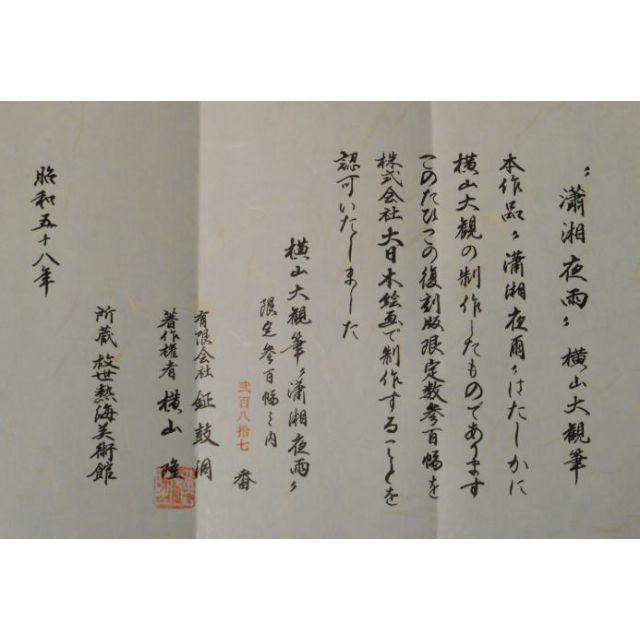 〝瀟湘夜雨〟横山大観筆
本作品〝瀟湘夜雨〟はたしかに
横山大観の制作したものであります
このたびこの復刻版限定数参百幅を
株式会社大日本絵画で制作することを
認可いたしました
横山大観筆〝瀟湘夜雨〟
限定参百幅之内
弐百八拾七番
有限会社 鉦鼓洞
著作権者 横山 隆
所蔵 救世熱海美術館
昭和五十八年